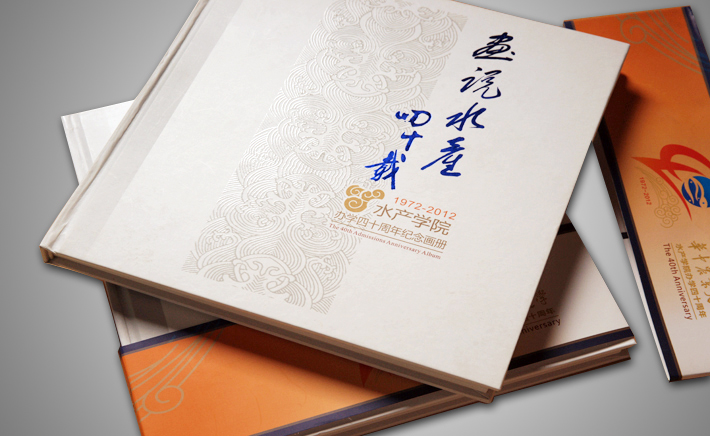 畫说水產
四十载
1972-2012
水产学院
办学四十周年纪念画册
The 40th Admissions Anniversary Album
1972-2012
水产学院办学四十周年
The 40th Anniversary
十周年
Anniversary